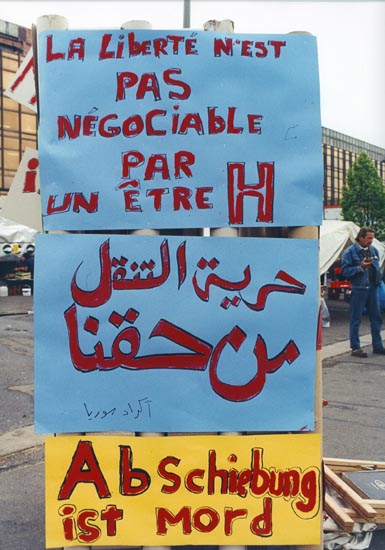 LA LIBERTÉ N'EST
PAS
NÉGOCIABLE
PAR
UN ÊTRE H
حرية التنقل
من حقنا
أكراد سوريا
Abschiebung
ist Mord